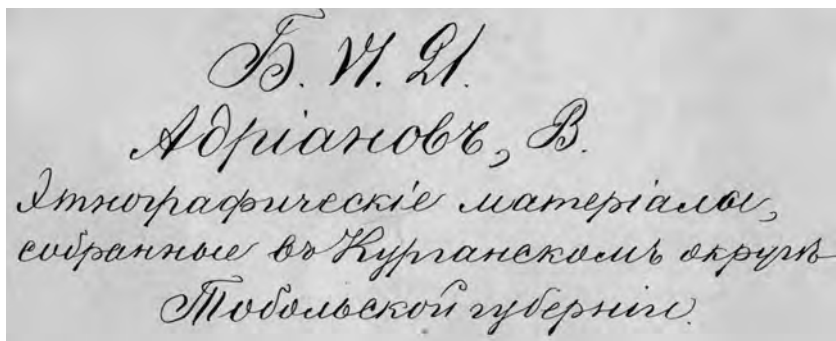 Б. VI. 21.
Адріановъ, В.
Этнографическіе матеріалы,
собранные въ Курганскомъ округѣ
Тобольской губерніи.